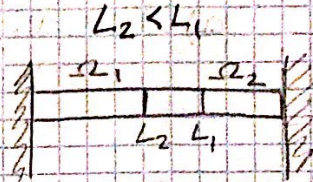 L₂ < L₁
Ω₁ Ω₂
L₂ L₁